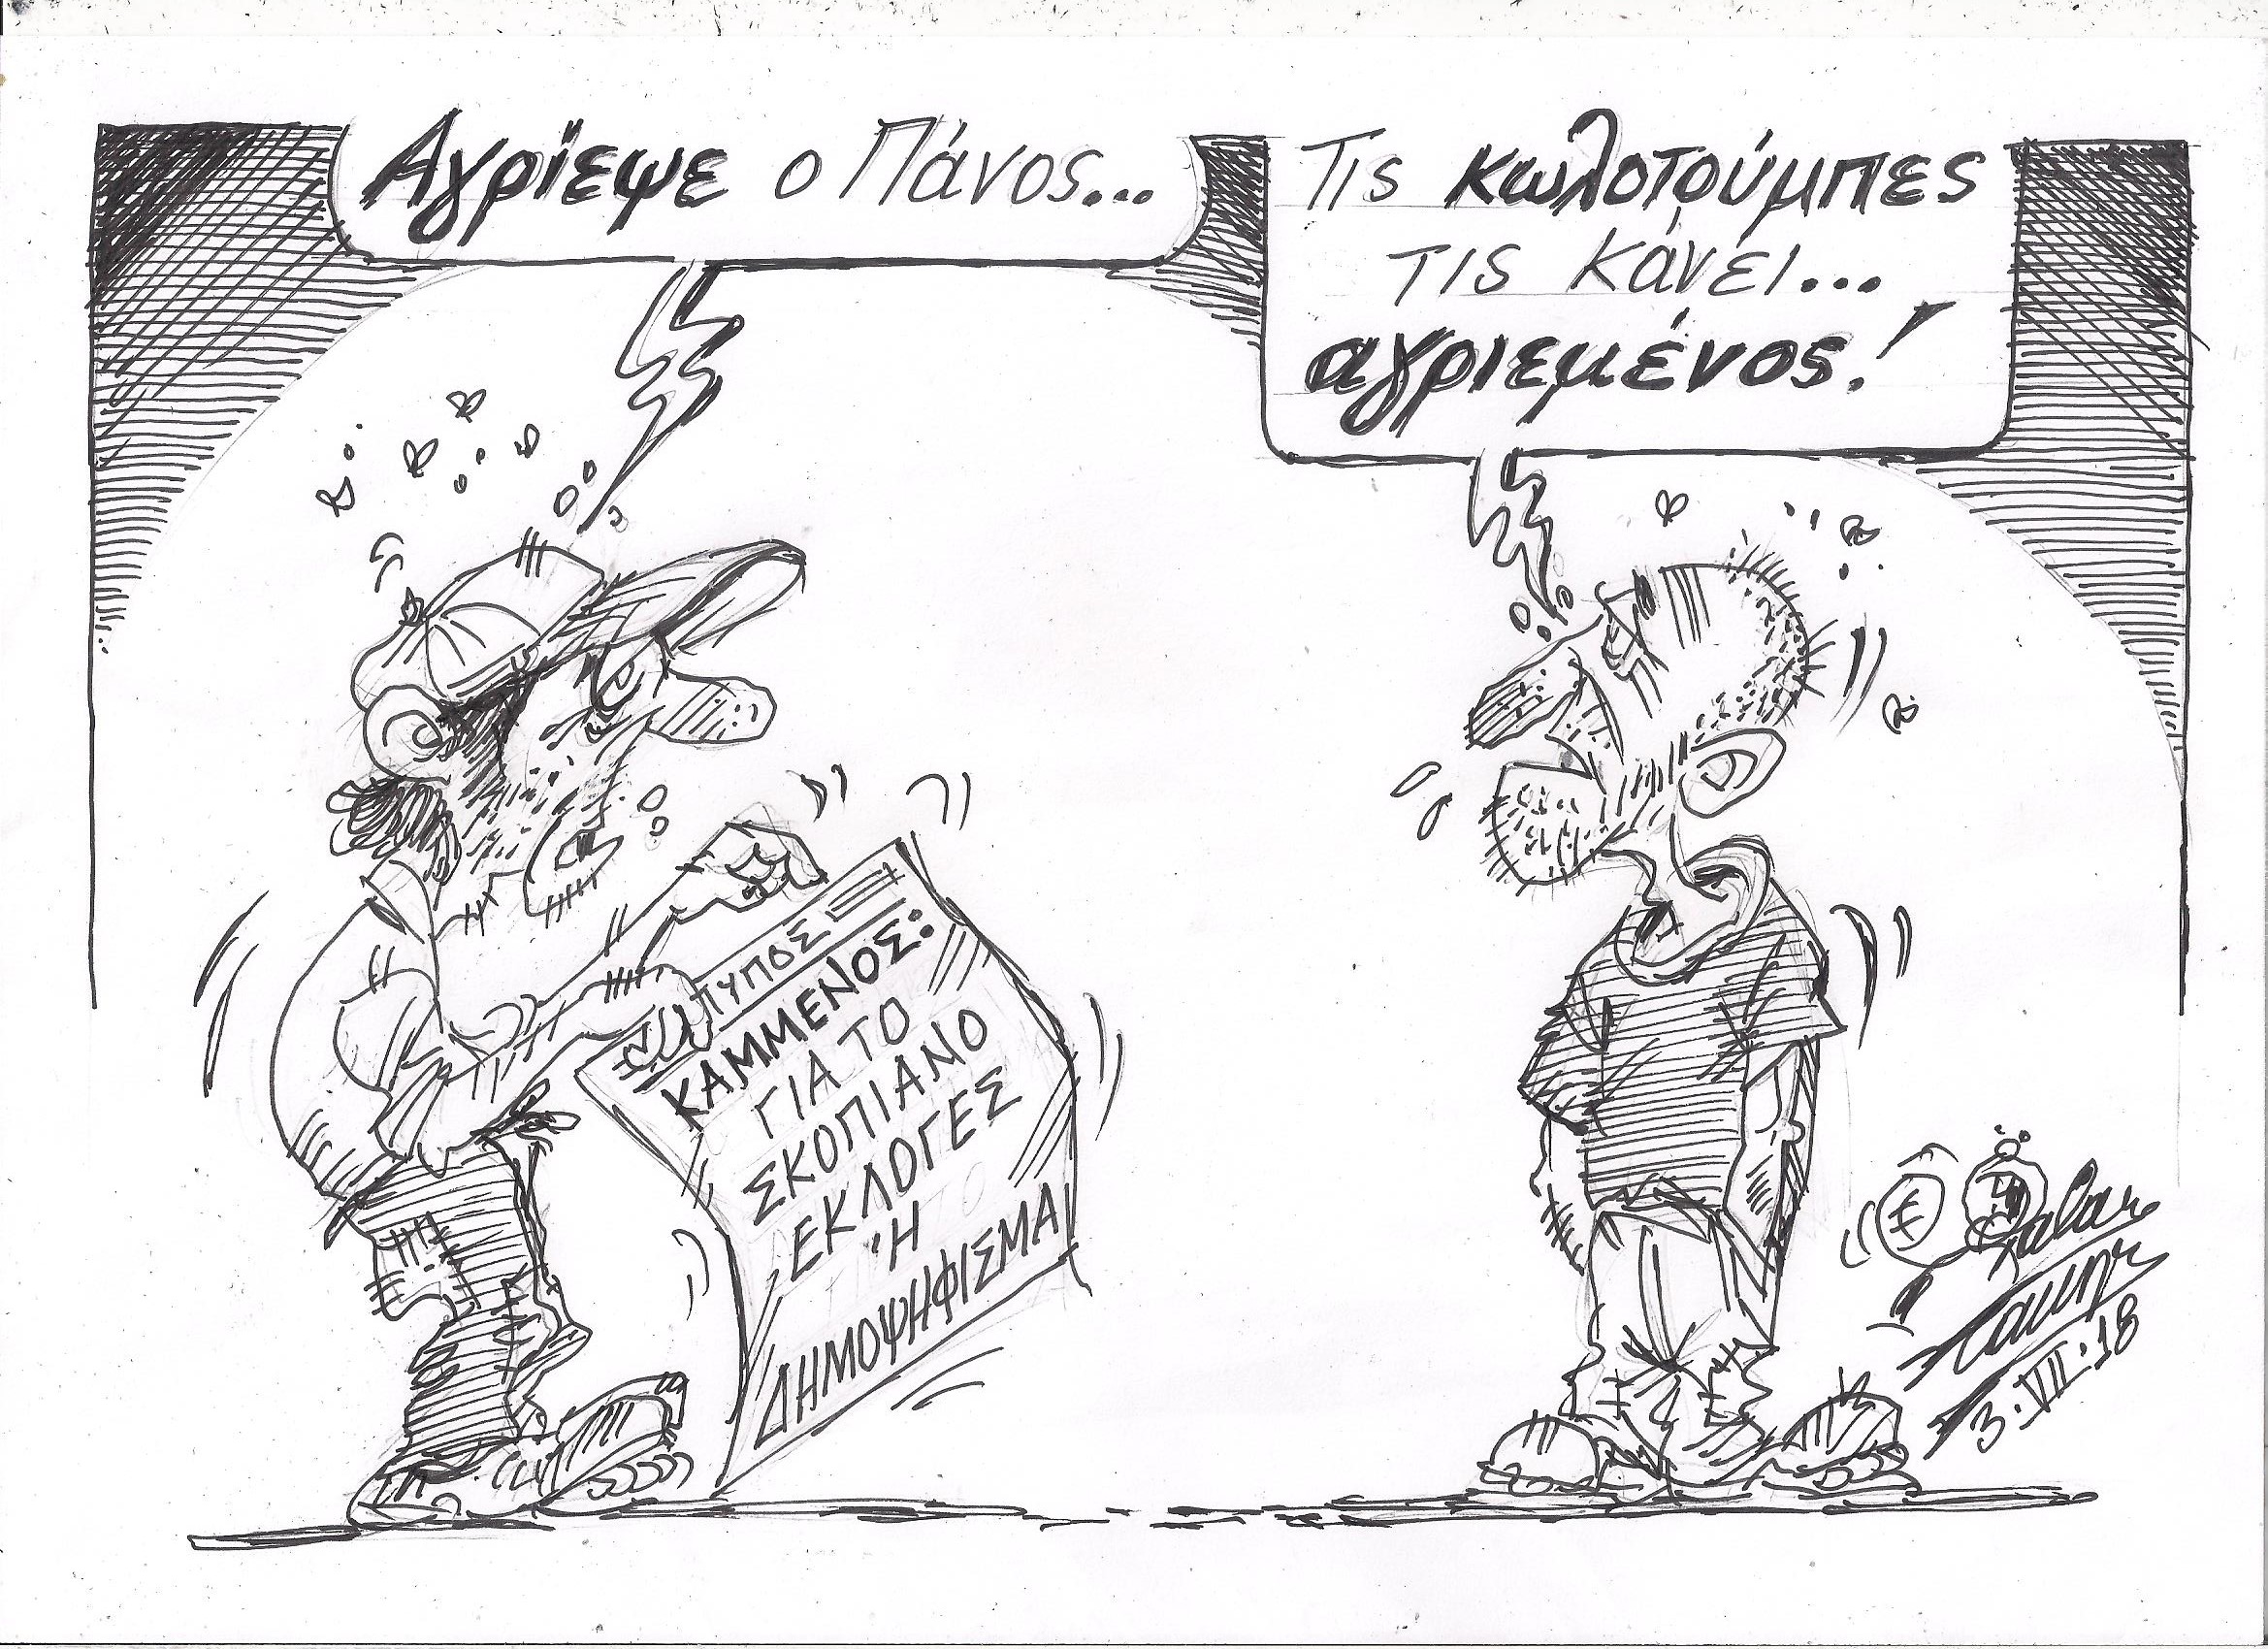 Αγρίεψε ο Πάνος...
Τις κωλοτούμπες
τις κάνει...
αγριεμένος!
ΤΥΠΟΣ
ΚΑΜΜΕΝΟΣ:
ΓΙΑ ΤΟ
ΣΚΟΠΙΑΝΟ
ΕΚΛΟΓΕΣ
Ή
ΔΗΜΟΨΗΦΙΣΜΑ
3.VII.18